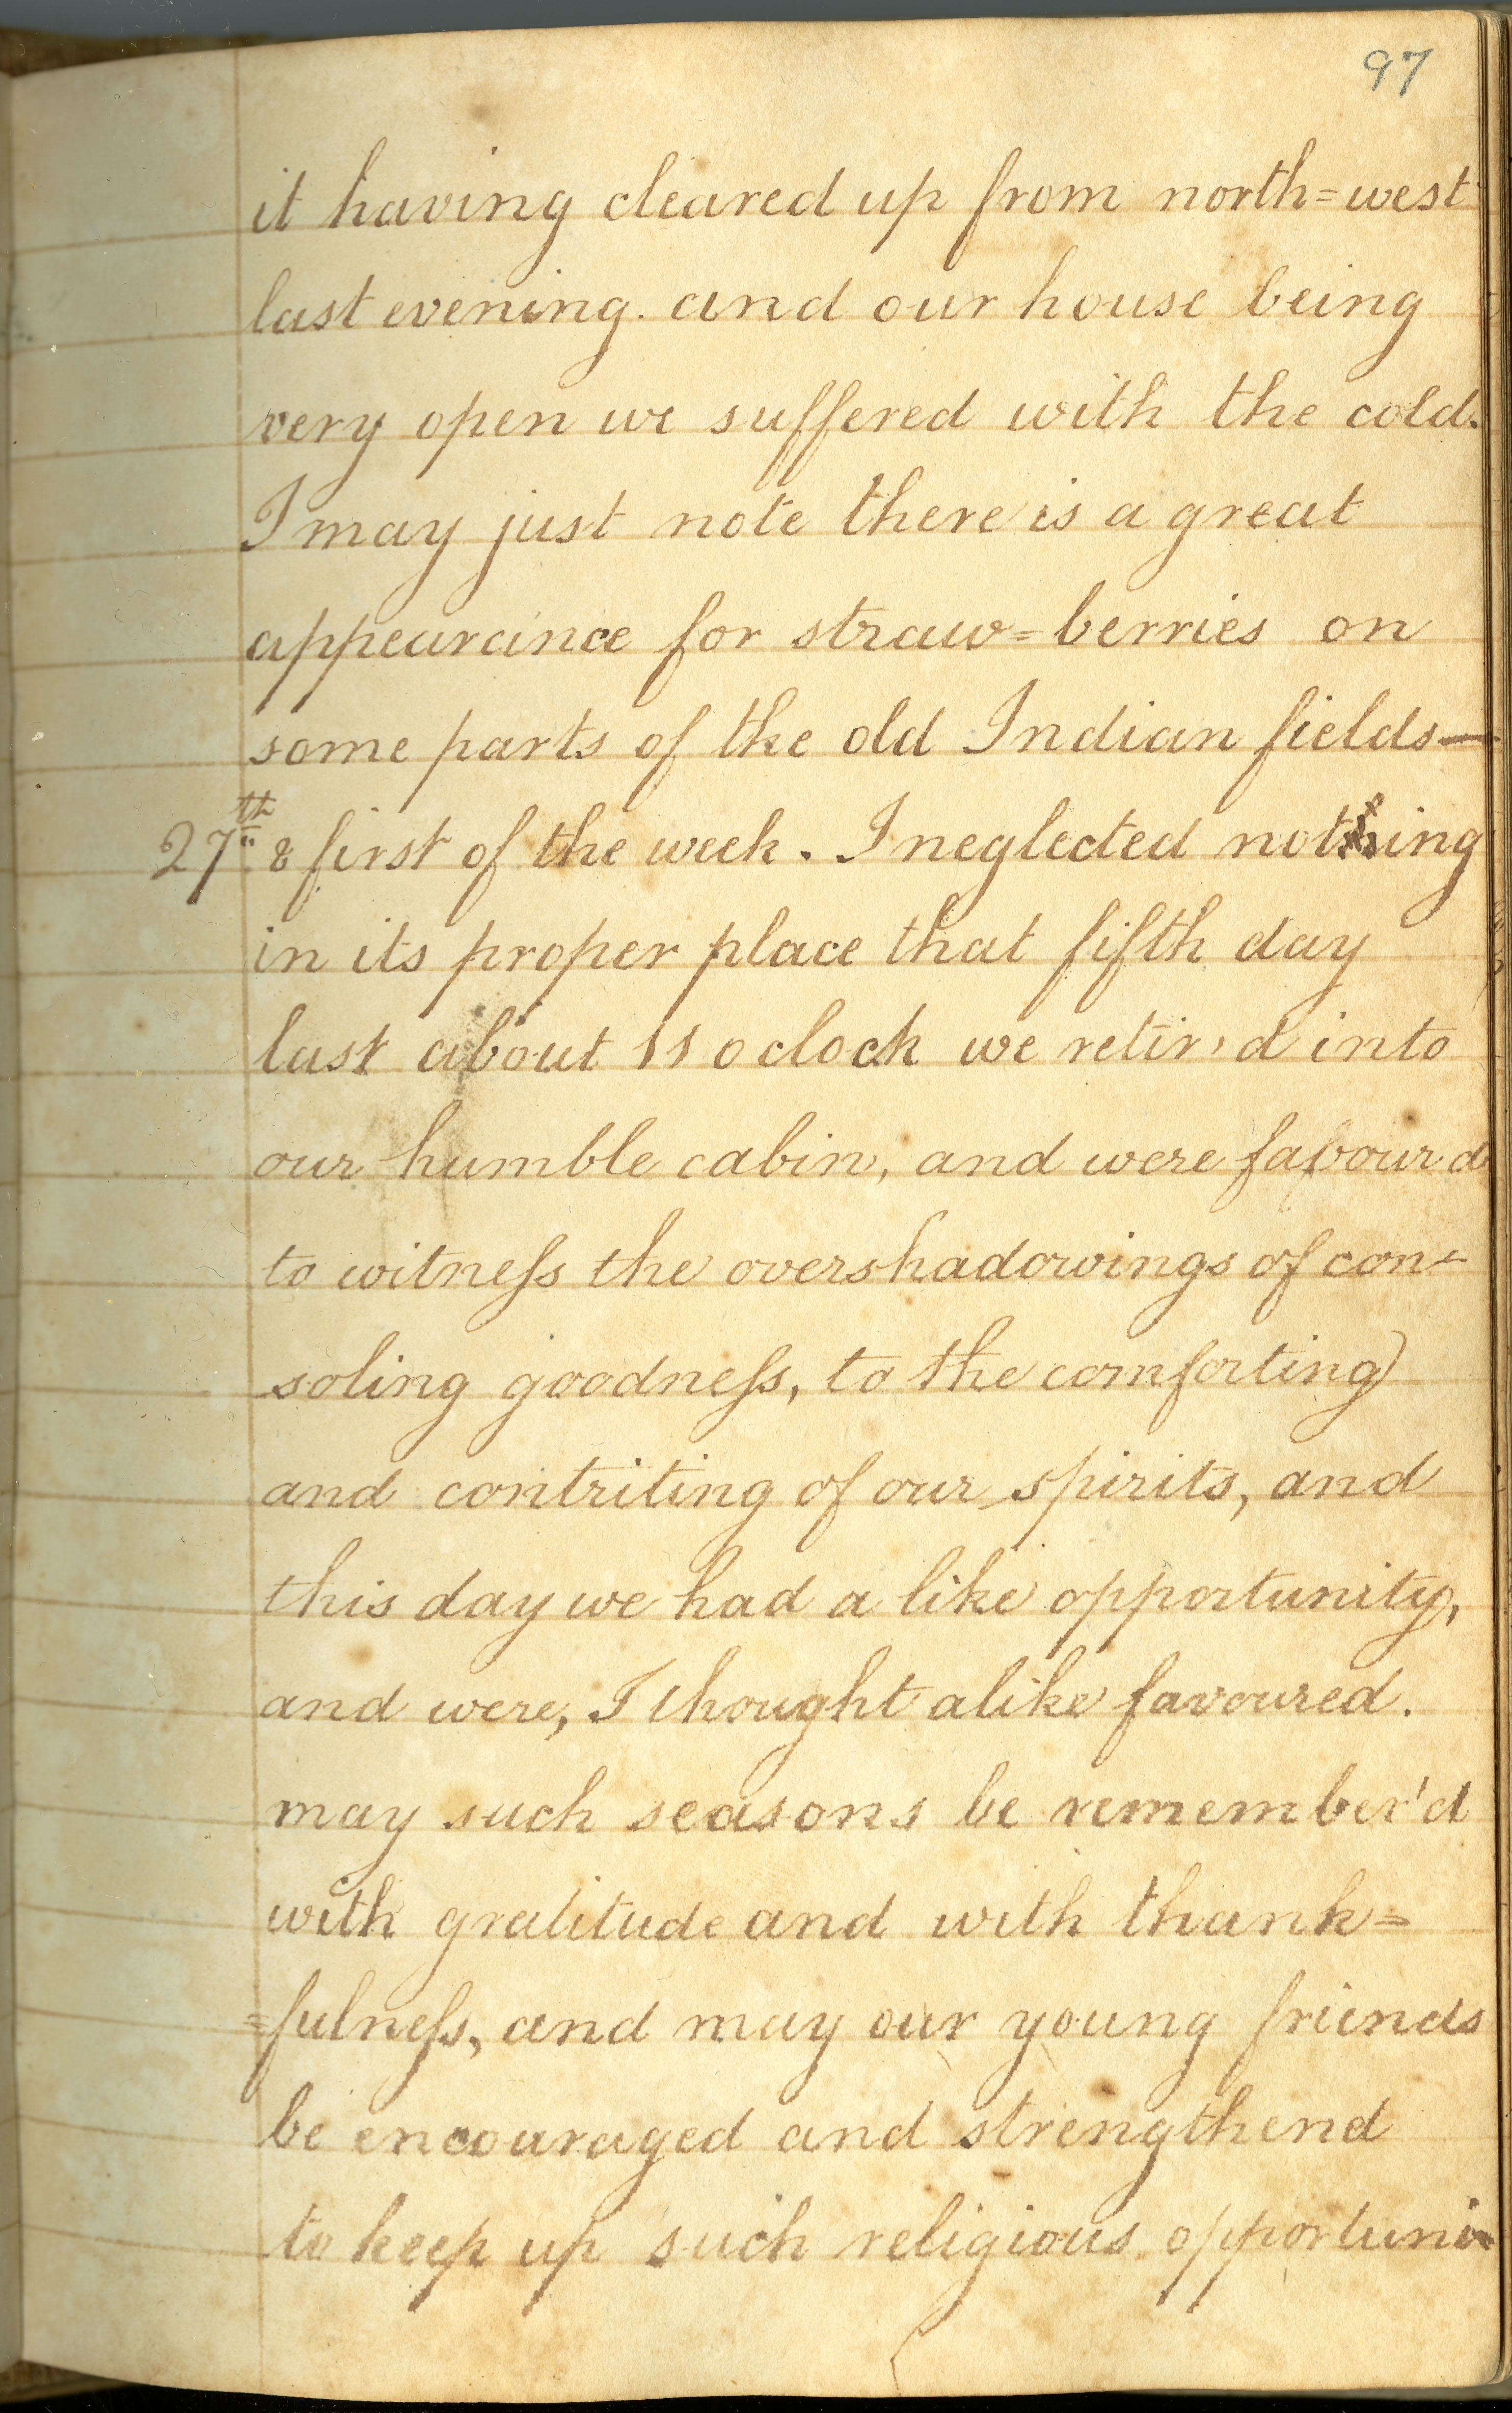 97
it having cleared up from north=west
last evening. and our house being
very open we suffered with the cold.
I may just note there is a great
appearance for straw=berries on
some parts of the old Indian fields—
27th & first of the week. I neglected noting
in its proper place that fifth day
last about 11 o clock we retir'd into
our humble cabin, and were favour'd
to witneſs the overshadowings of con-
soling goodneſs, to the comforting
and contriting of our spirits, and
this day we had a like opportunity,
and were, I thought alike favoured.
may such seasons be remember'd
with gratitude and with thank=
=fulneſs, and may our young friends
be encouraged and strengthend
to keep up such religious opportuni=